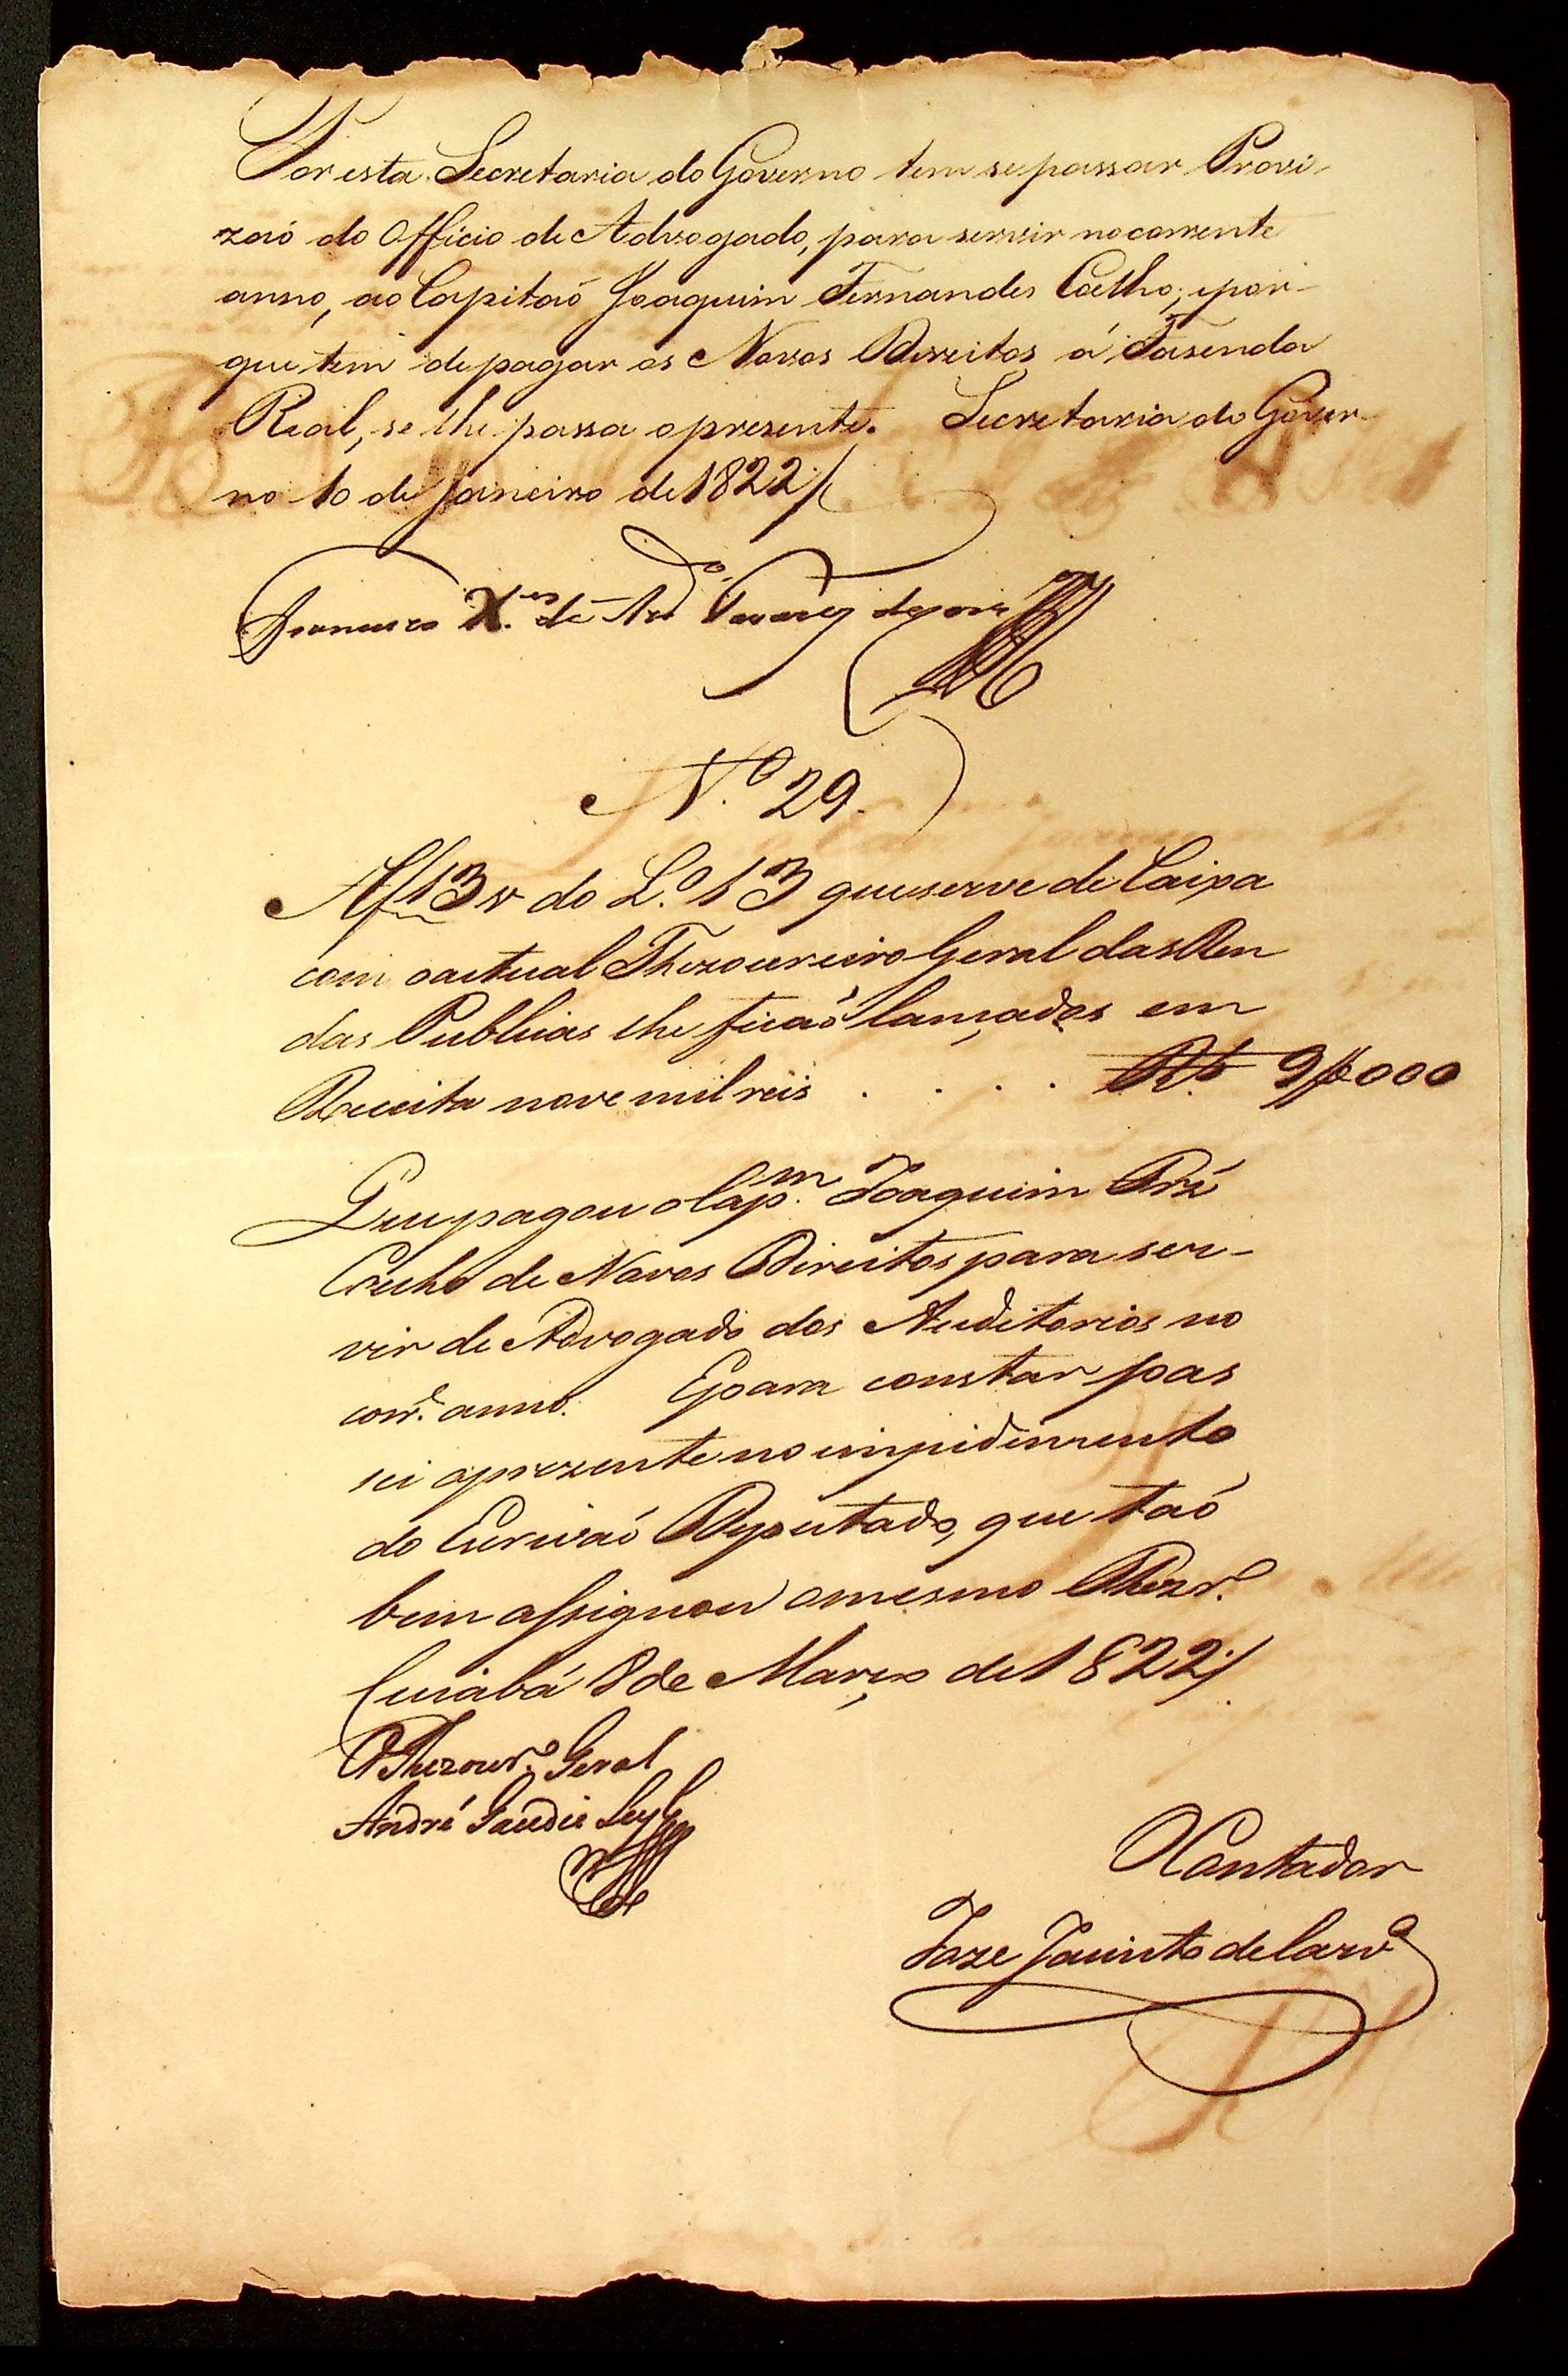 Por esta Secretaria do Governo tem se passar Provi-
zaõ do Officio de Advogado, para servir no corrente
anno, ao Capitaõ Joaquim Fernandes Coelho; e por-
que tem de pagar os Novos Direitos á Fasenda
Real, se lhe passa a presente. Secretaria do Gover-
no 10 de Janeiro de 1822
Francisco X.er de
N.º 29.
A f 13 v do L.º 13 que serve de Caixa
com o actual Thezoureiro Geral das Ren
das Publicas lhe ficaõ lançados em
Receita nove mil reis . . . . R.s 9$000
Que pagou o Cap.m Joaquim
Coelho de Novos Direitos para ser-
vir de Advogado dos Auditorios no
corr.e anno. E para constar pas
sei a prezente no impedimento
do Escrivaõ Deputado, que taõ
bem assignou o mesmo Thezr.o
Cuiabá 8 de Março de 1822
O Thezour.o Geral
André Gaudie Ley
O Contador
Joze Jacinto de Carv.o